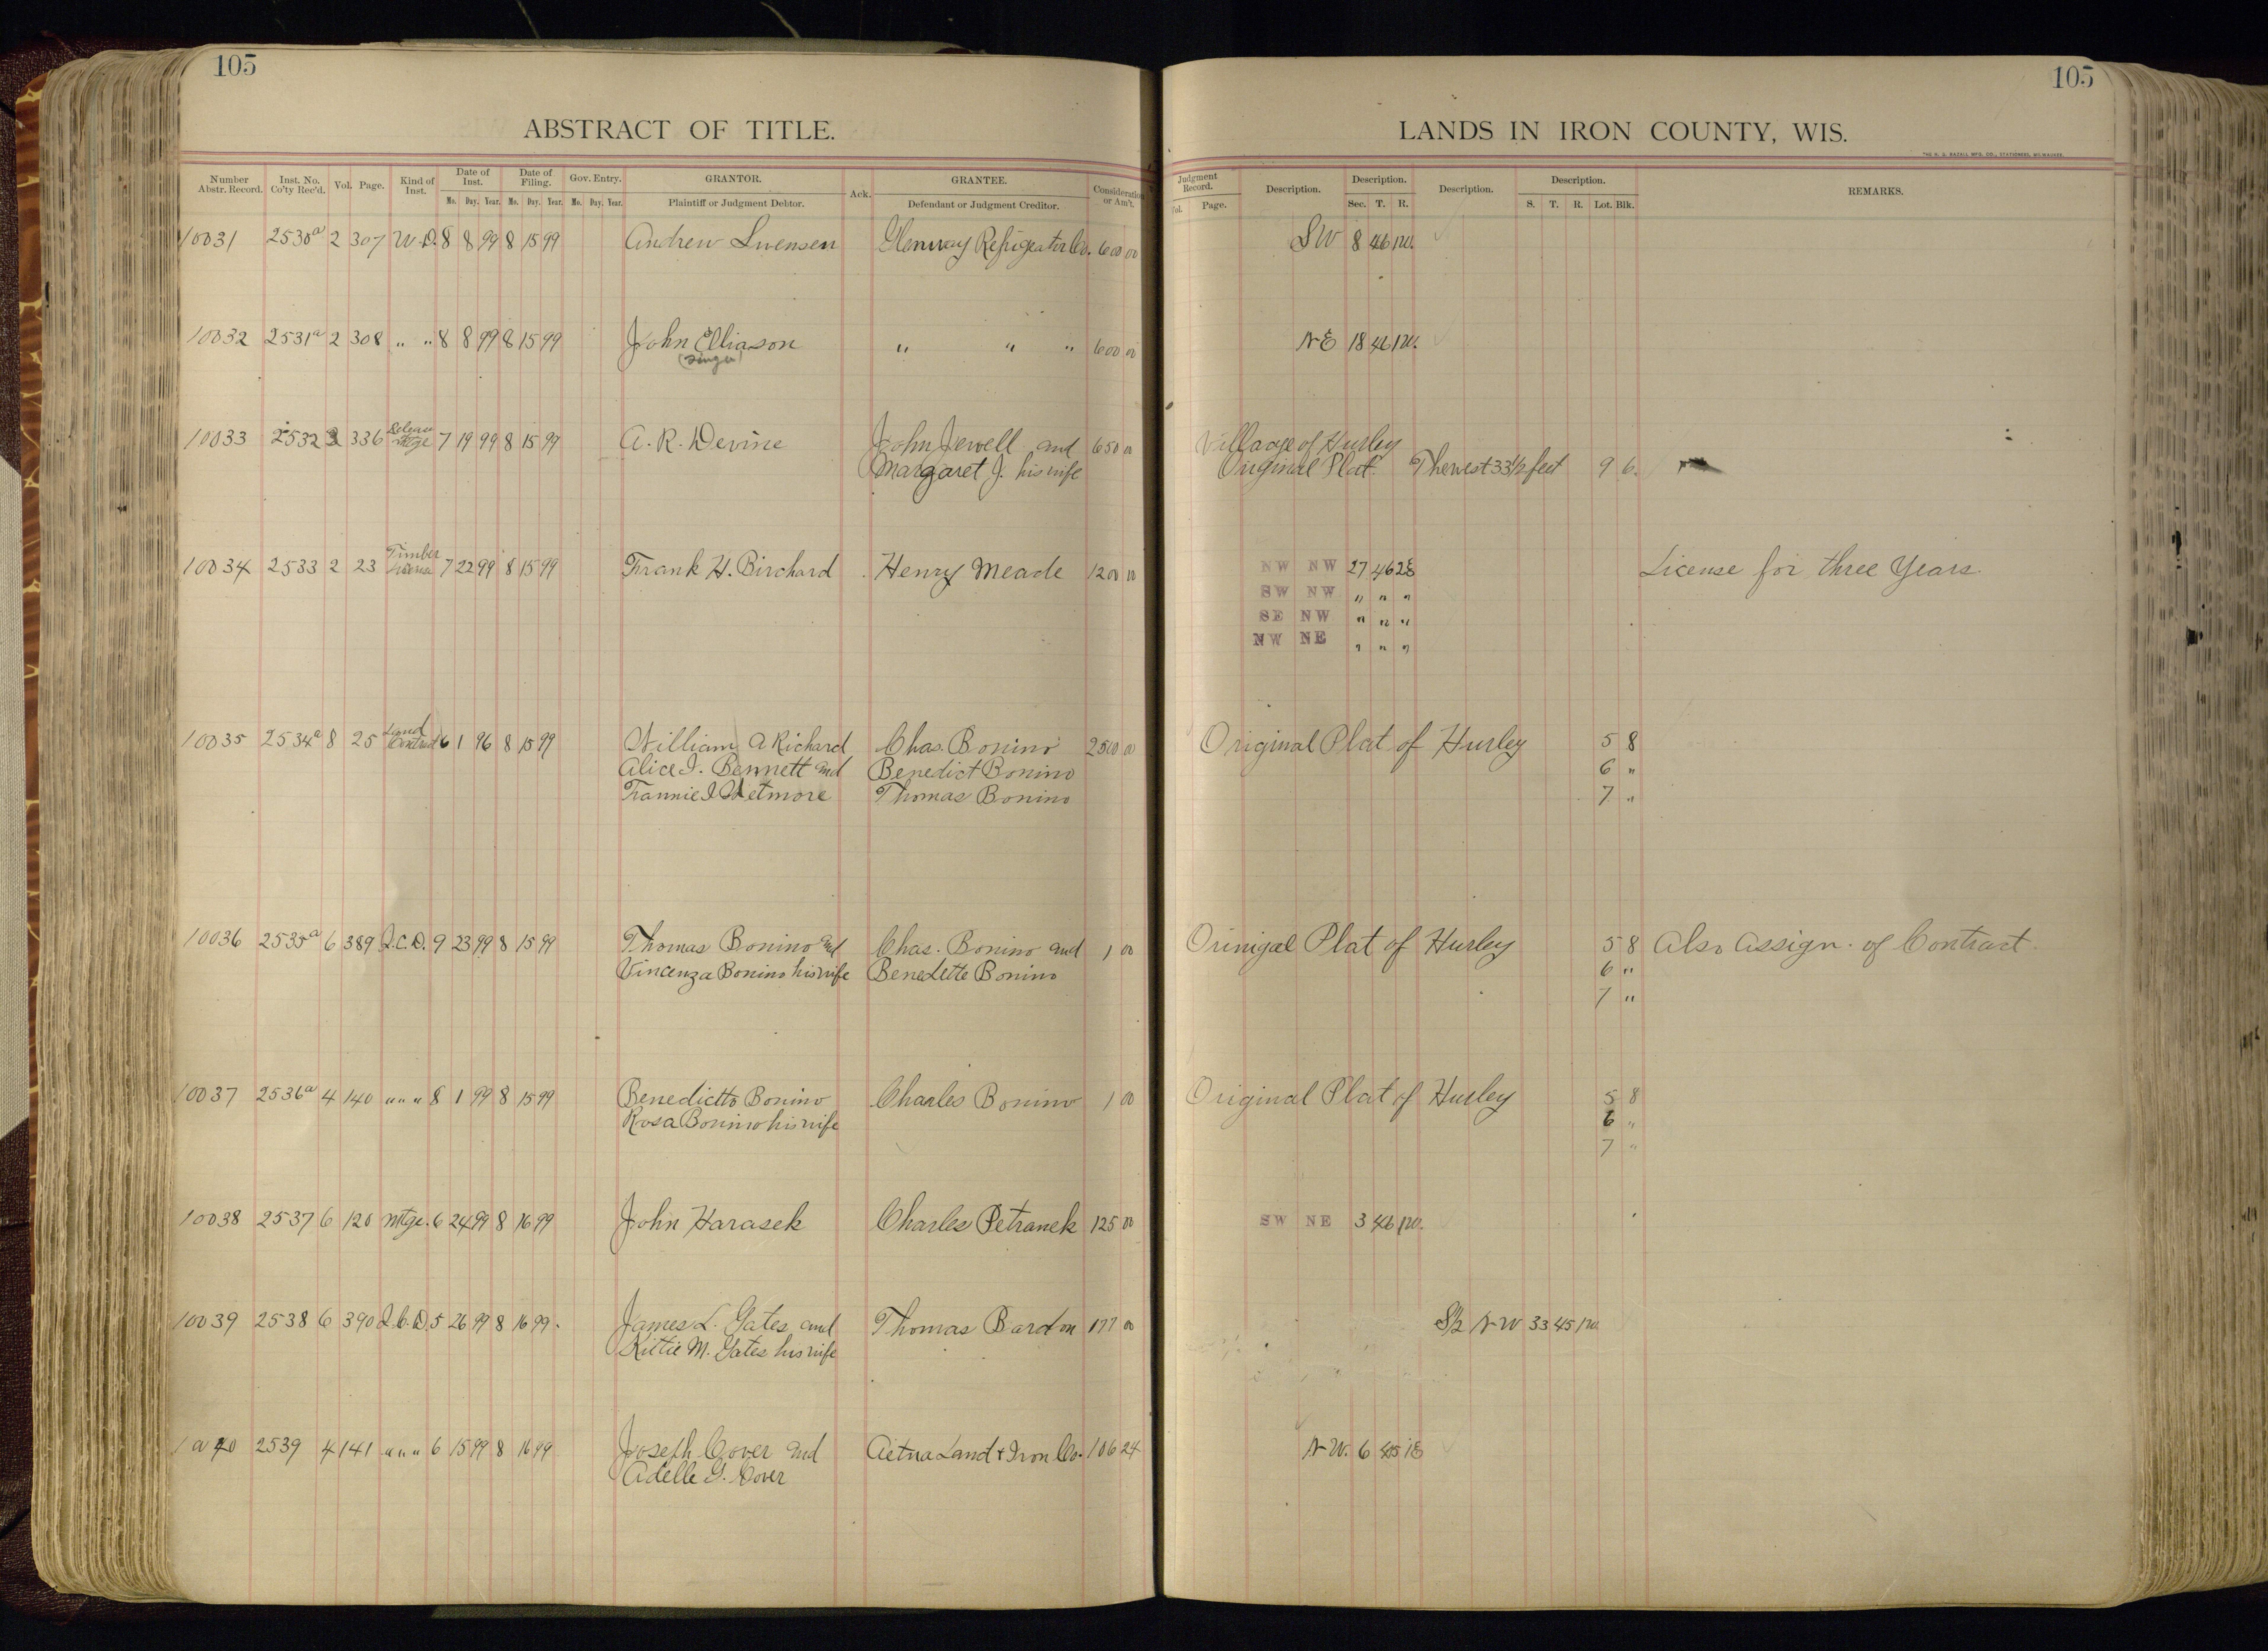 105
105
ABSTRACT OF TITLE.
LANDS IN IRON COUNTY, WIS.
THE H. G. RAZALL MFG. CO., STATIONERS, MILWAUKEE.
Number Abstr. Record. Inst. No. Co'ty Rec'd. Vol. Page. Kind of Inst. Date of Inst. Date of Filing. Gov. Entry. GRANTOR. Ack. GRANTEE. Consideration or Am't. Judgment Record. Description. Description. Description. Description. REMARKS.
Mo. Day. Year. Mo. Day. Year. Mo. Day. Year. Plaintiff or Judgment Debtor. Defendant or Judgment Creditor. Vol. Page. Sec. T. R. S. T. R. Lot. Blk.
10031 2530a 2 307 W.D. 8 8 99 8 15 99 Andrew Swensen Glenway Refrigeator Co. 600 00 SW 8 46 1W.
10032 2531a 2 308 " " 8 8 99 8 15 99 John Elliason " " " 600 00 NE 18 46 1W.
(Singu)
10033 2532 2 336 Release Mtge 7 19 99 8 15 99 A. R. Devine John Jewell and 650 00 Village of Hurley
Margaret J. his wife Original Plat. The west 33 1/2 feet 9 6.
10034 2533 2 23 Timber License 7 22 99 8 15 99 Frank H. Birchard Henry Meade 1200 00 NW NW 27 46 2E License for three Years.
SW NW " " "
SE NW " " "
NW NE " " "
10035 2534a 8 25 Land Contract 6 1 96 8 15 99 William A Richard Chas. Bonino 2500 00 Original Plat of Hurley 5 8
Alice I. Bennett and Benedict Bonino 6 "
Frannie I Wetmore Thomas Bonino 7 "
10036 2535a 6 389 Q.C.D. 9 23 99 8 15 99 Thomas Bonino and Chas. Bonino and 1 00 Orinigal Plat of Hurley 5 8 Also Assign. of Contract.
Vincenza Bonino his wife Benedette Bonino 6 "
7 "
10037 2536a 4 140 " " " 8 1 99 8 15 99 Benedictto Bonino Charles Bonino 1 00 Original Plat of Hurley 5 8
Rosa Bonino his wife 6 "
7 "
10038 2537 6 120 Mtge. 6 24 99 8 16 99 John Harasek Charles Petranek 125 00 SW NE 3 46 1W.
10039 2538 6 390 Q.C.D. 5 26 99 8 16 99. James L. Gates and Thomas Bardon 177 00 S1/2 NW 33 45 1W.
Kittie M. Gates his wife
10040 2539 4 141 " " " 6 15 99 8 16 99 Joseph Cover and Aetna Land & Iron Co. 106 24 NW. 6 45 1E
Adelle G. Cover